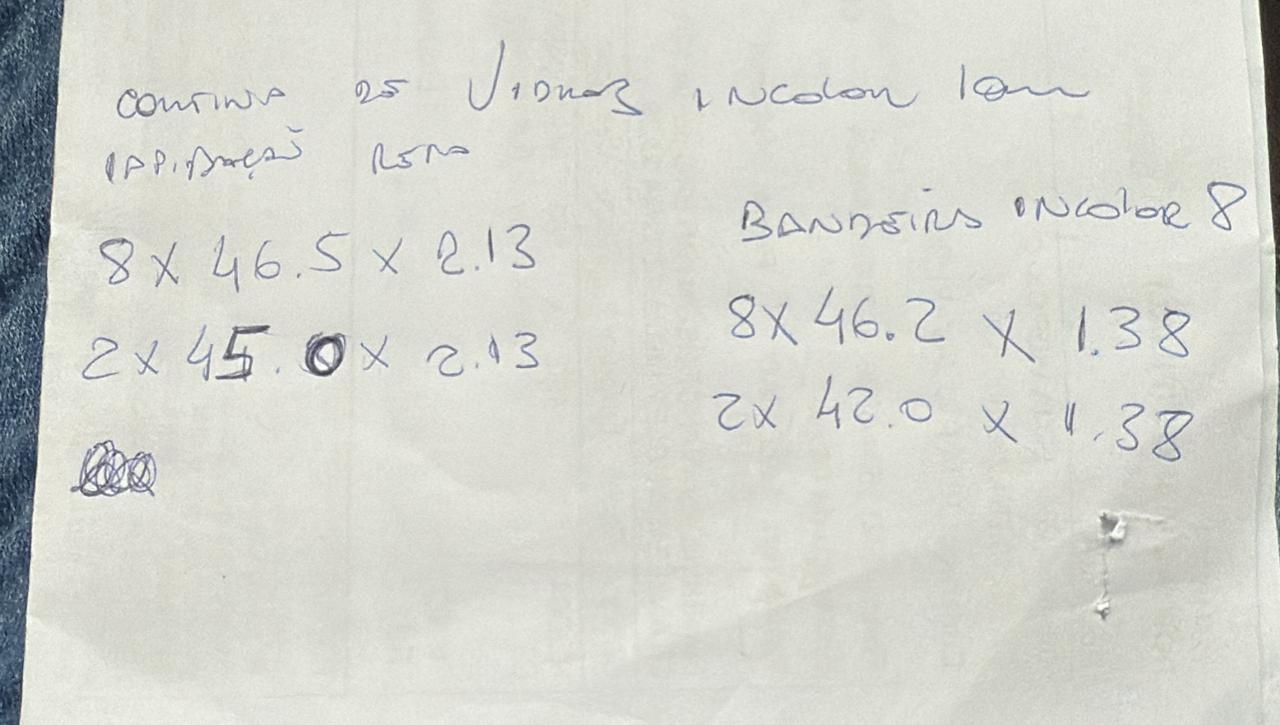 CORTINA DE VIDROS INCOLOR 10mm
LAPIDAÇÃO RETA
8 X 46.5 X 2.13
2 X 45.0 X 2.13
BANDEIRA INCOLOR 8
8X 46.2 X 1.38
2X 42.0 X 1.38